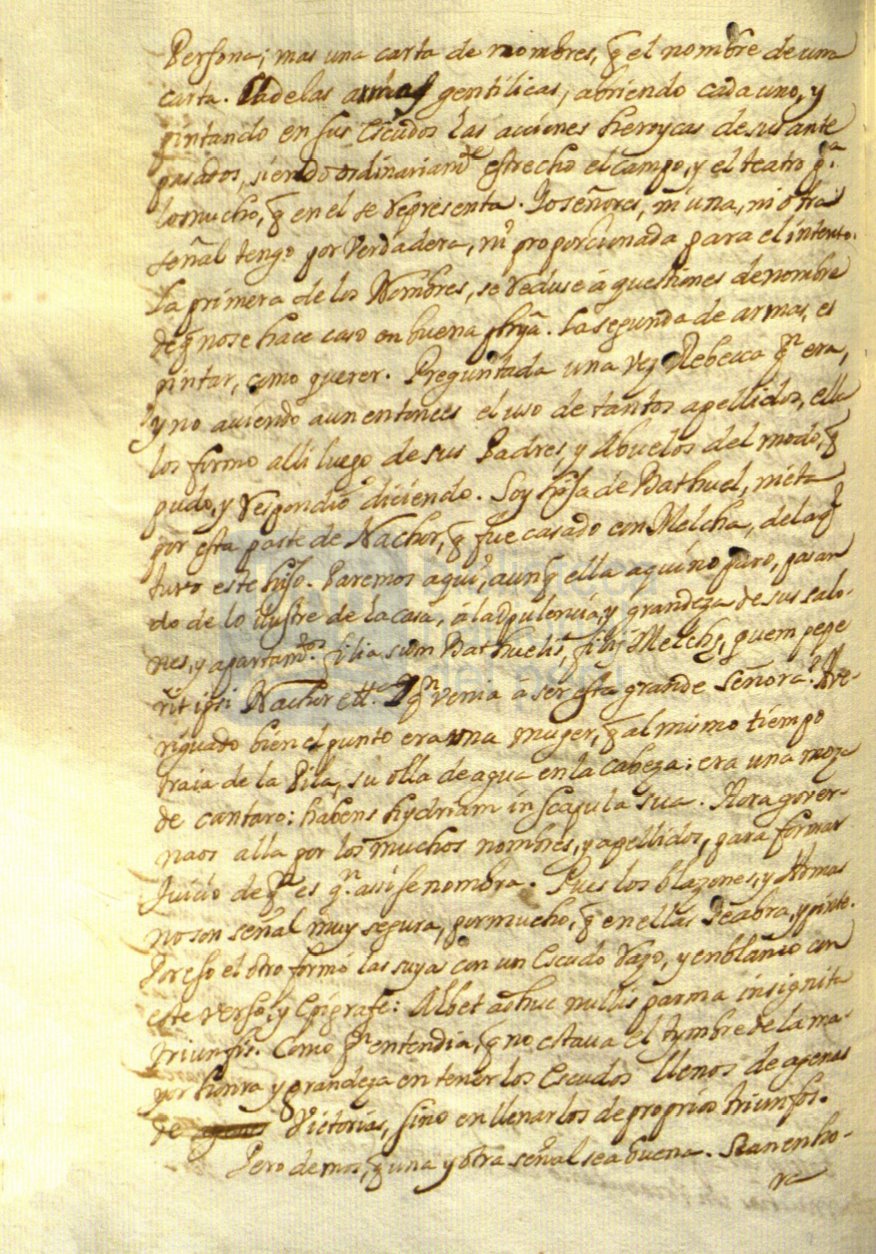 Persona; mas una carta de nombres, q̃ el nombre de una
carta. Ya de las armas gentilicas, abriendo cada uno, y
pintando en sus Escudos las acciones heroycas de sus ante
pasados, siendo ordinariamte. estrecho el campo, y el teatro pa.
lo mucho, q̃ en el se representa. Io señores, ni una, ni otra
señal tengo por verdadera, ni proporcionada para el intento.
La primera de los Nombres, se reduse â questiones de nombre
de q̃ no se hace caso en buena phĩa. La segunda de armas, es
pintar, como querer. Preguntada una vez Rebecca qn. era,
y no auiendo aun entonces el uso de tantos apellidos, ella
los formo alli luego de sus Padres, y Abuelos del modo, q̃
pudo, y respondiò diciendo. Soy hija de Bathuel, nieta
por esta parte de Nachor, q̃ fue casado con Melcha, de la q̃
tuvo este hijo. Paremos aqui, aunq̃ ella aqui no paro, pasan
do de lo ilustre de la casa, â la opulencia, y grandeza de sus salo-
nes, y apartamtos. filia sum Bathuelis, filij Melchę, quem pepe
rit ipsi Nachor ett.a I qn. venia a ser esta grande Señora? Ave-
riguado bien el punto era una muger, q̃ al mismo tiempo
traia de la Pila, su olla de agua en la cabeza: era una moza
de cantaro: habens hydriam in scapula sua. Aora gover-
naos alla por los muchos nombres, y apellidos, para formar
Iuicio de qn. es qn. assi se nombra. Pues los blazones, y Armas
no son señal muy segura, por mucho, q̃ en ellas se abra, y pinte.
Por eso el otro formò las suya con un Escudo razo, y en blanco con
este verso, y Epigrafe: Albet adhuc nullis parma insignita
triumfis. Como qn. entendia, q̃ no estava el tymbre de la ma-
yor honra y grandeza en tener los Escudos llenos de agenas
de Victorias, sino en llenarlos de proprios triunfos.
Pero demos, q̃ una y otra señal sea buena. Sean enho-
ra